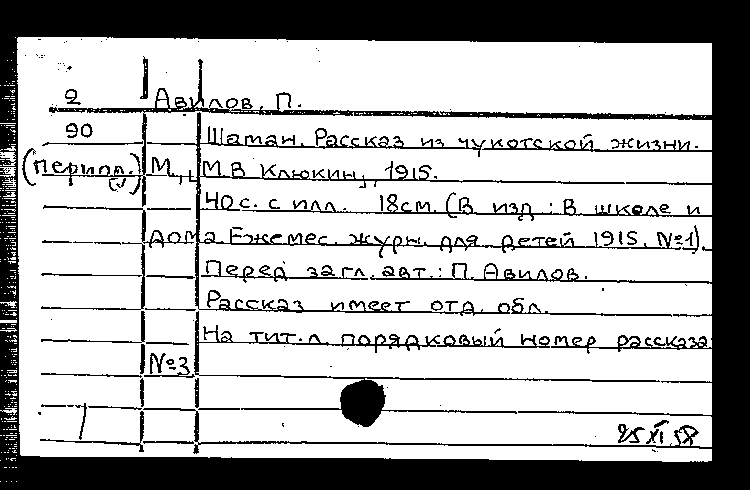 2 Авилов, П.
90 Шаман. Рассказ из чукотской жизни.
(период.) М., М.В Клюкин, 1915.
40с. с илл. 18см. (В изд: В школе и
дома. Ежемес. журн. для детей 1915, №1).
Перед загл. авт.: П. Авилов.
Рассказ имеет отд. обл.
На тит. л. порядковый номер рассказа
№3
25 XI 58